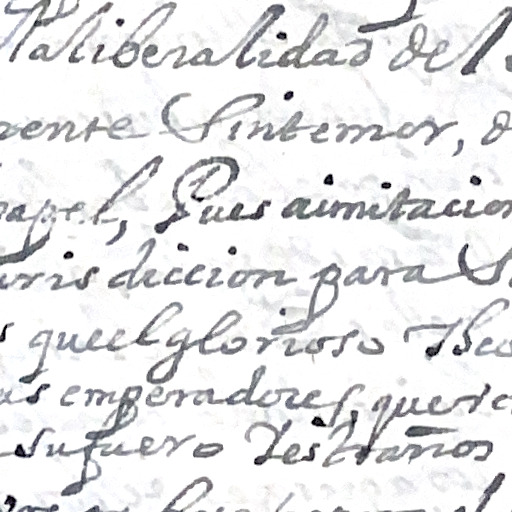 laliberalidad del
rente Sintemor, d
papel, Pues aimitacion
uris diccion para S
s queel glorioso Theo
as emperadores, quer
sufuero Yestraños